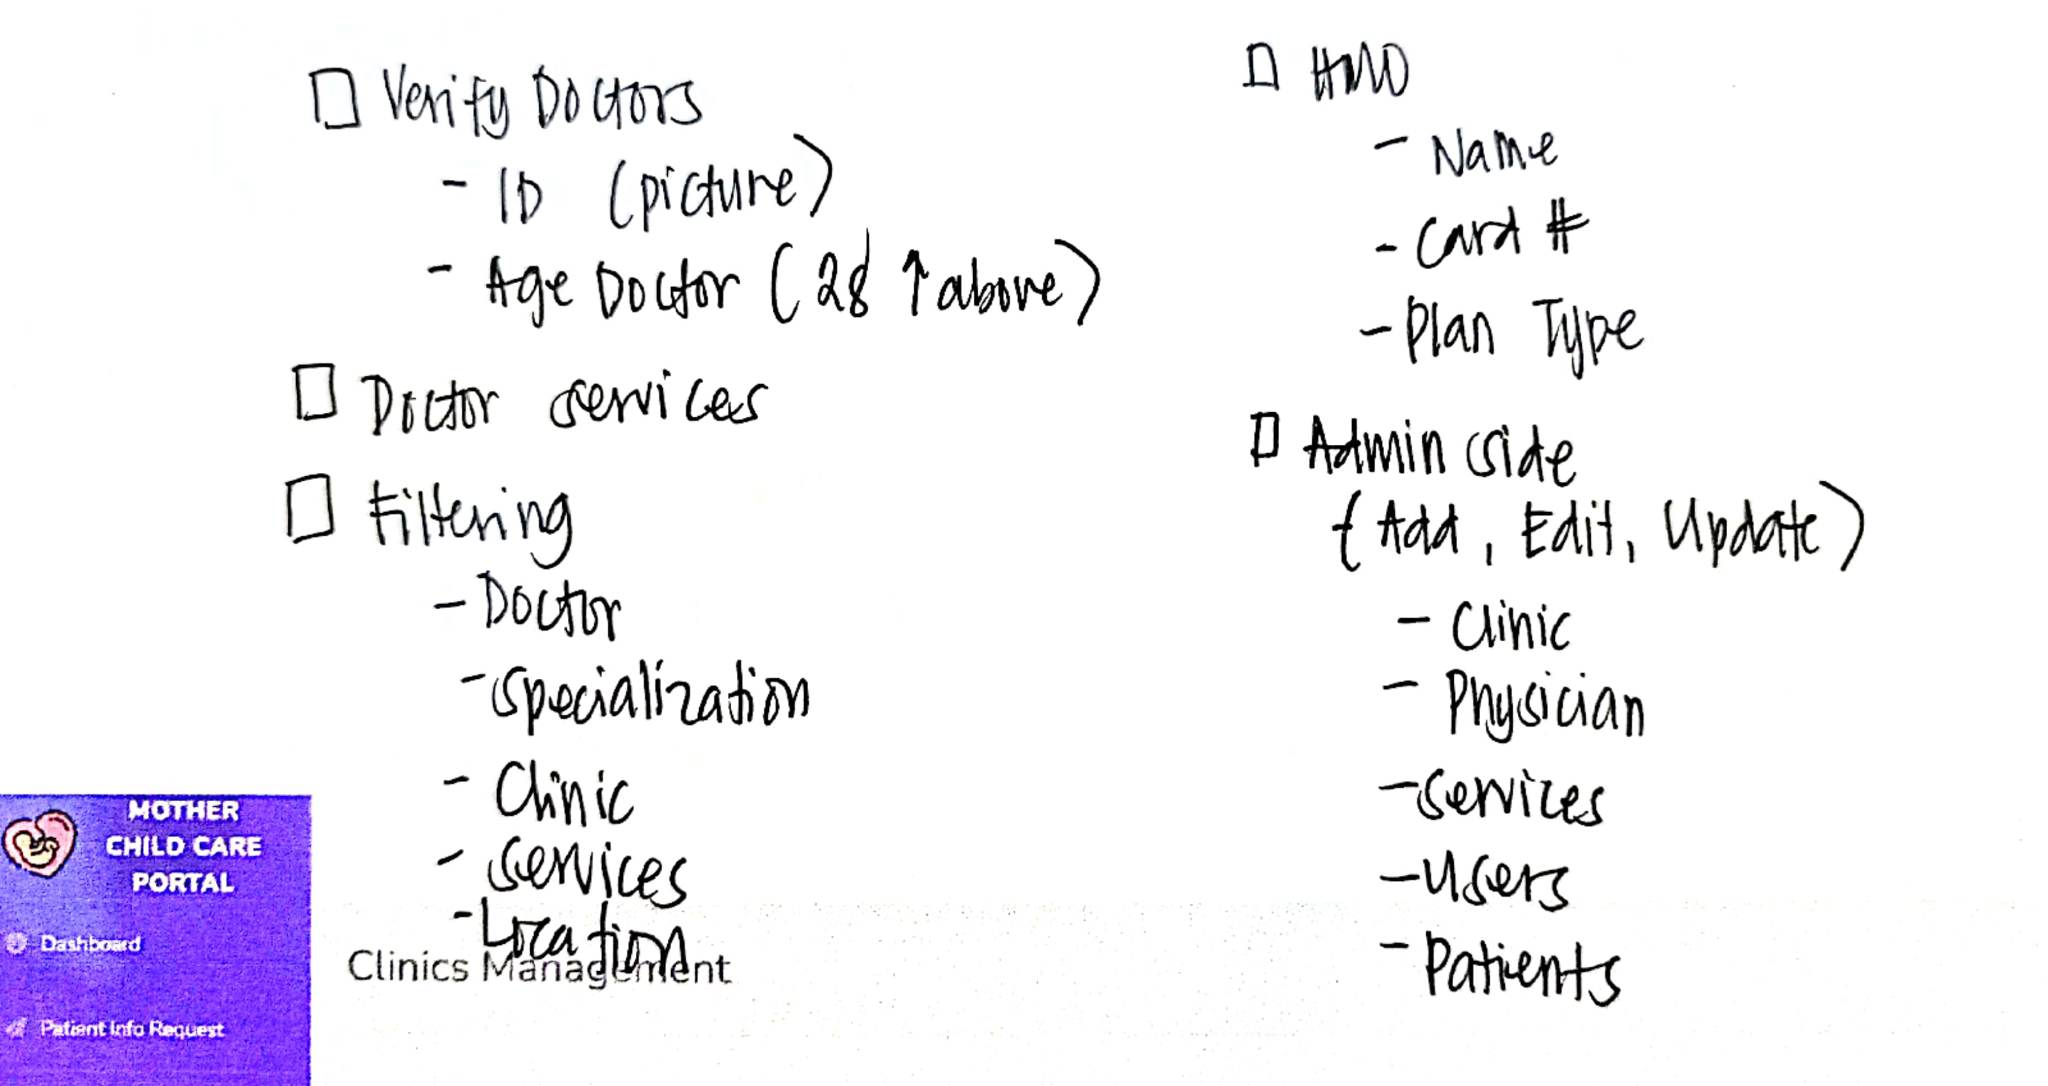 ☐ Verify Doctors
- ID (picture)
- Age Doctor (28 ↑ above)
☐ Doctor services
☐ Filtering
- Doctor
- Specialization
- Clinic
- Services
- Location
☐ HMO
- Name
- Card #
- Plan Type
☐ Admin side
(Add, Edit, Update)
- Clinic
- Physician
- Services
- Users
- Patients
MOTHER
CHILD CARE
PORTAL
Dashboard
Patient Info Request
Clinics Management